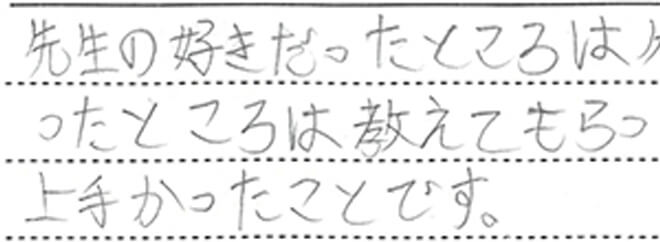 先生の好きだったところは
ったところは教えてもらっ
上手かったことです。